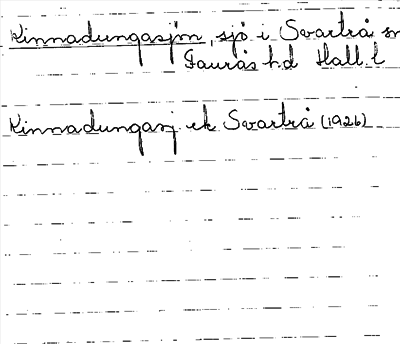 Kinnadungasjön, sjö i Svartrå sn
Faurås hd Hall. l
Kinnadungasj ek Svartrå (1926)